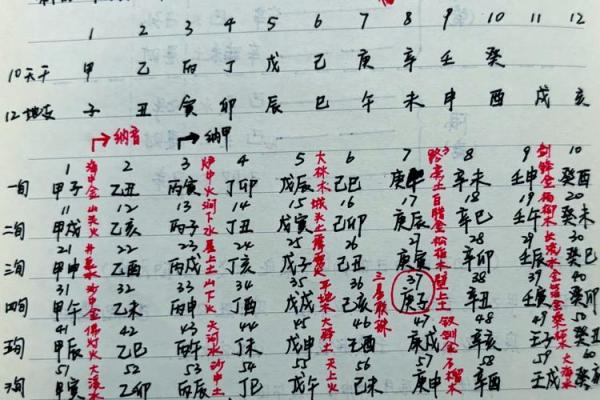 1 2 3 4 5 6 7 8 9 10 11 12
10天干 甲 乙 丙 丁 戊 己 庚 辛 壬 癸
12地支 子 丑 寅 卯 辰 巳 午 未 申 酉 戌 亥
纳音 纳甲
1 2 3 4 5 6 7 8 9 10
一旬 甲子 海中金 乙丑 丙寅 炉中火 丁卯 戊辰 大林木 己巳 庚午 路旁土 辛未 壬申 剑锋金 癸酉
11 12 13 14 15 16 17 18 19 20
二旬 甲戌 山头火 乙亥 丙子 涧下水 丁丑 戊寅 城头土 己卯 庚辰 白腊金 辛巳 壬午 杨柳木 癸未
21 22 23 24 25 26 27 28 29 30
三旬 甲申 乙酉 丙戌 屋上土 丁亥 戊子 己丑 庚寅 松柏木 辛卯 壬辰 长流水 癸巳
31 32 33 34 35 36 37 38 39 40
四旬 甲午 沙中金 乙未 丙申 山下火 丁酉 戊戌 平地木 己亥 庚子 壁上土 辛丑 壬寅 癸卯
41 42 43 44 45 46 47 48 49 50
五旬 甲辰 佛灯火 乙巳 丙午 天河水 丁未 戊申 大驿土 己酉 庚戌 钗钏金 辛亥 壬子 癸丑
51 52 53 54 55 56 57 58 59 60
六旬 甲寅 大溪水 乙卯 丙辰 沙中土 丁巳 戊午 天上火 己未 庚申 石榴木 辛酉 壬戌 大海水 癸亥